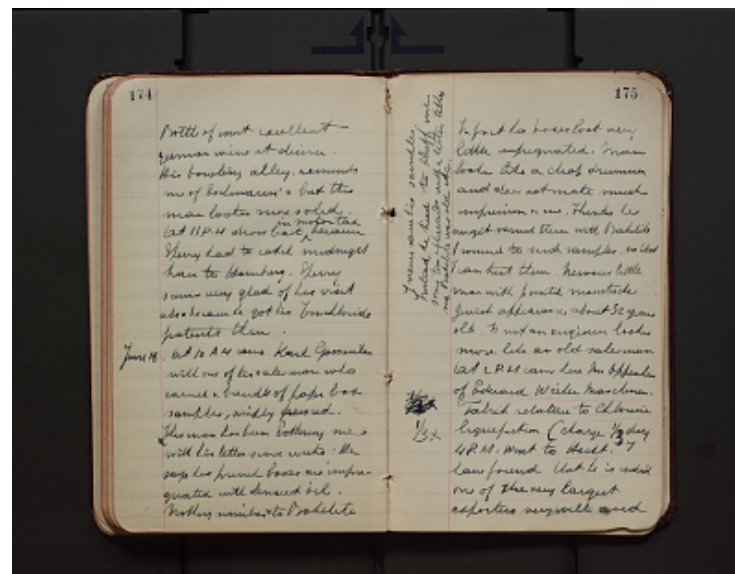 174
Bottle of most excellent
german wine at dinner.
His bowling alley, reminds
me of but this
man looks more solid.
in motor taxi
At 11 P.M. drove back, because
Sperry had to catch midnight
train to Hamburg. Sperry
seems very glad of his visit
also because he got his
patents there.
June 18. At 10 A.M. came Karl
with one of his salesman who
carried a bundle of paper box
samples, simply pressed.
This man has been bothering me
with his letters since weeks. He
says his pressed boxes are impre-
gnated with linseed oil.
Nothing similar to Bakelite
175
In fact his boxes look very
little impregnated. Man
looks like a cheap drummer
and does not make much
impression on me. Thinks he
might varnish them with Bakelite
I never saw his samples
Instead he tried to bluff me
promised to send samples, so that
I can test them. Nervous little
man with pointed moustache
Jewish appearance, about 32 years
old. Is not an engineer looks
more like an old salesman
At 2 P.M. came here Mr Oppenheim
of Eduard Maschinen
Fabrik relative to Chlorine
liquefaction (charge 1/3 day
4 P.M. Went to . I
have found that he is indeed
one of the very largest
exporters very well
1/3x